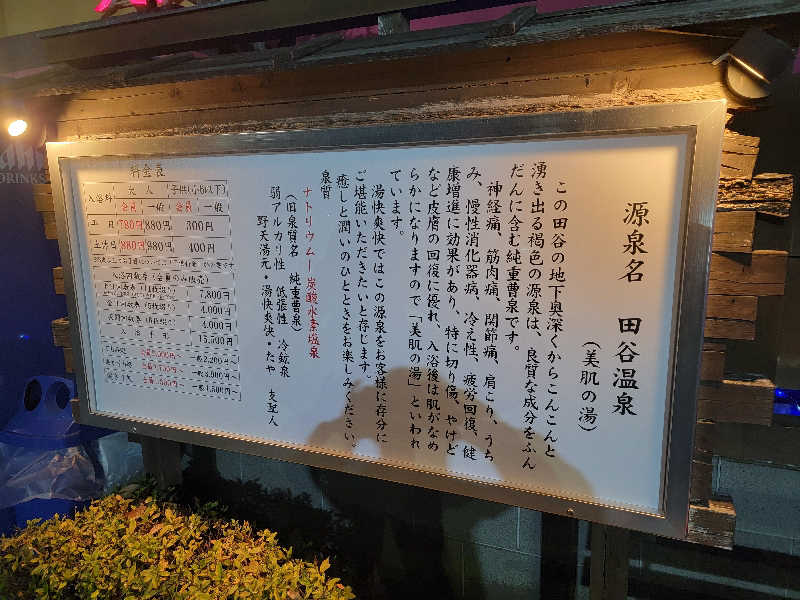 源泉名 田谷温泉
(美肌の湯)
この田谷の地下奥深くからこんこんと
湧き出る褐色の源泉は、良質な成分をふん
だんに含む純重曹泉です。
神経痛、筋肉痛、関節痛、肩こり、うち
み、慢性消化器病、冷え性、疲労回復、健
康増進に効果があり、特に切り傷、やけど
など皮膚の回復に優れ、入浴後は肌がなめ
らかになりますので「美肌の湯」といわれ
ています。
湯快爽快ではこの源泉をお客様に存分に
ご堪能いただきたいと存じます。
癒しと潤いのひとときをお楽しみください。
泉質
ナトリウムー炭酸水素塩泉
(旧泉質名 純重曹泉)
弱アルカリ性 低張性 冷鉱泉
野天湯元・湯快爽快・たや 支配人
料金表
入浴料 大人 子供(小6以下)
会員 一般 会員 一般
平日 780円 880円 300円
土・祝日 880円 980円 400円
7,800円
4,000円
4,000円
DRINKS